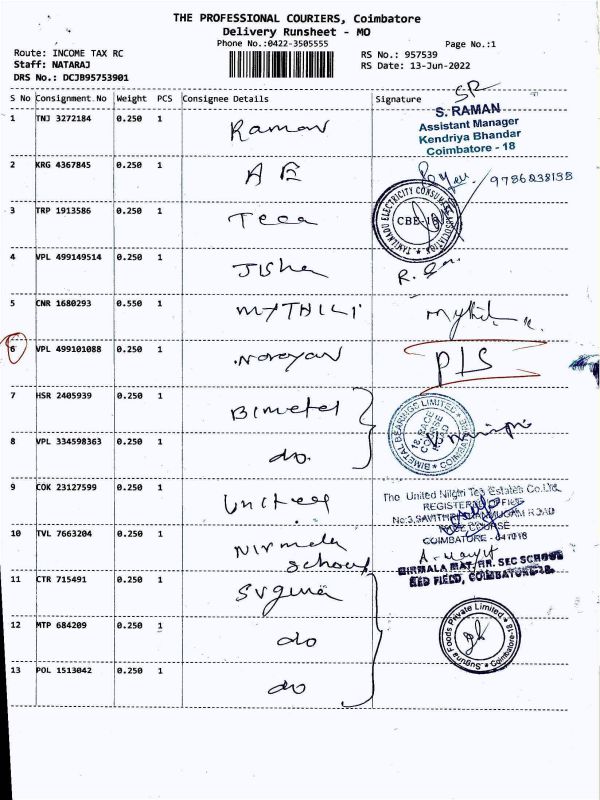 THE PROFESSIONAL COURIERS, Coimbatore
Delivery Runsheet - MO
Phone No.:0422-3505555
Page No.:1
Route: INCOME TAX RC
RS No.: 957539
Staff: NATARAJ
RS Date: 13-Jun-2022
DRS No.: DCJB95753901
S No Consignment.No Weight PCS Consignee Details Signature
SR
1 TNJ 3272184 0.250 1 Raman
S. RAMAN
Assistant Manager
Kendriya Bhandar
Coimbatore - 18
2 KRG 4367845 0.250 1 A E 9786238138
3 TRP 1913586 0.250 1 Teca
TAMILNADU ELECTRICITY CONSUMERS ASSOCIATION
CBE-18
4 VPL 499149514 0.250 1 Jisha
5 CNR 1680293 0.550 1 MYTHILI
6 VPL 499101088 0.250 1 Narayan P/S
7 HSR 2405939 0.250 1 Bimetal
BIMETAL BEARINGS LIMITED
18, RACE COURSE ROAD
8 VPL 334598363 0.250 1 do
9 COK 23127599 0.250 1 United
The United Nilgiri Tea Estates Co.Ltd.
REGISTERED OFFICE
No:3,SAVITHRI SHANMUGAM ROAD
RACE COURSE
COIMBATORE - 641018
10 TVL 7663204 0.250 1 Nirmala
School
NIRMALA MAT. HR. SEC SCHOOL
RED FIELD, COIMBATORE-18.
11 CTR 715491 0.250 1 Suguna
12 MTP 684209 0.250 1 do
Suguna Foods Private Limited
Coimbatore-18
13 POL 1513042 0.250 1 do